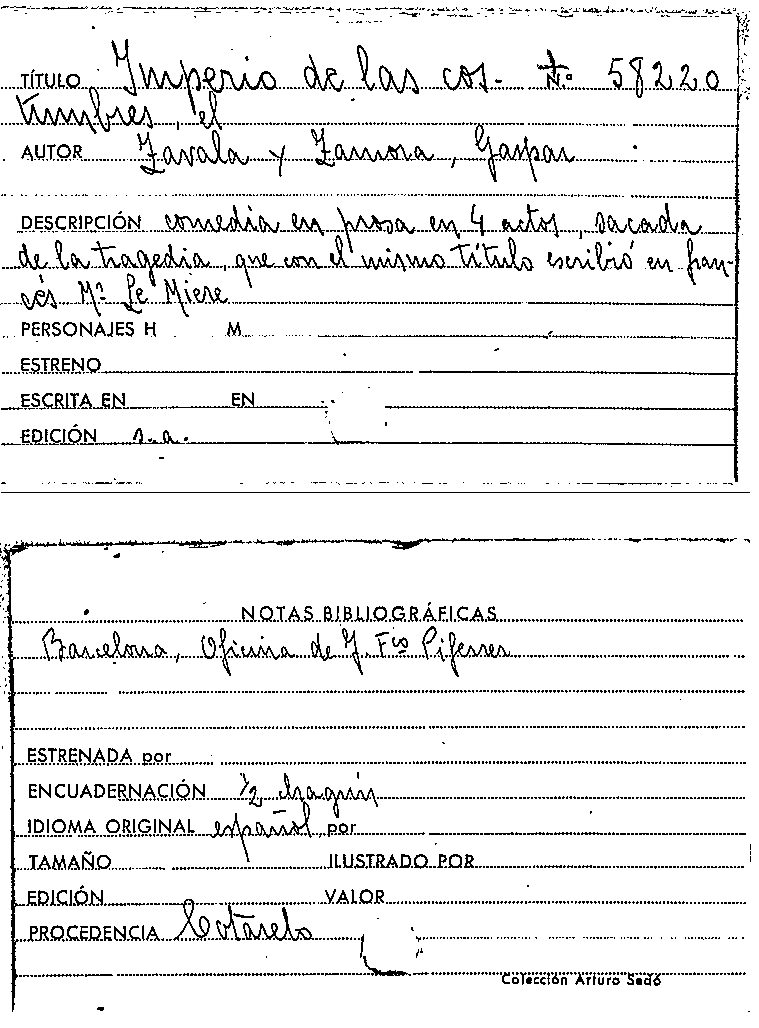 TÍTULO Imperio de las cos- N.º 58220
tumbres, el
AUTOR Zavala y Zamora, Gaspar
DESCRIPCIÓN comedia en prosa en 4 actos, sacada
de la tragedia, que con el mismo título escribió en fran-
cés Mº Le Miere
PERSONAJES H M
ESTRENO
ESCRITA EN EN
EDICIÓN s.a.
NOTAS BIBLIOGRÁFICAS
Barcelona, Oficina de J. Fco Piferrer
ESTRENADA por
ENCUADERNACIÓN 1/2 chagrín
IDIOMA ORIGINAL español por
TAMAÑO ILUSTRADO POR
EDICIÓN VALOR
PROCEDENCIA Cotarelo
Colección Arturo Sedó